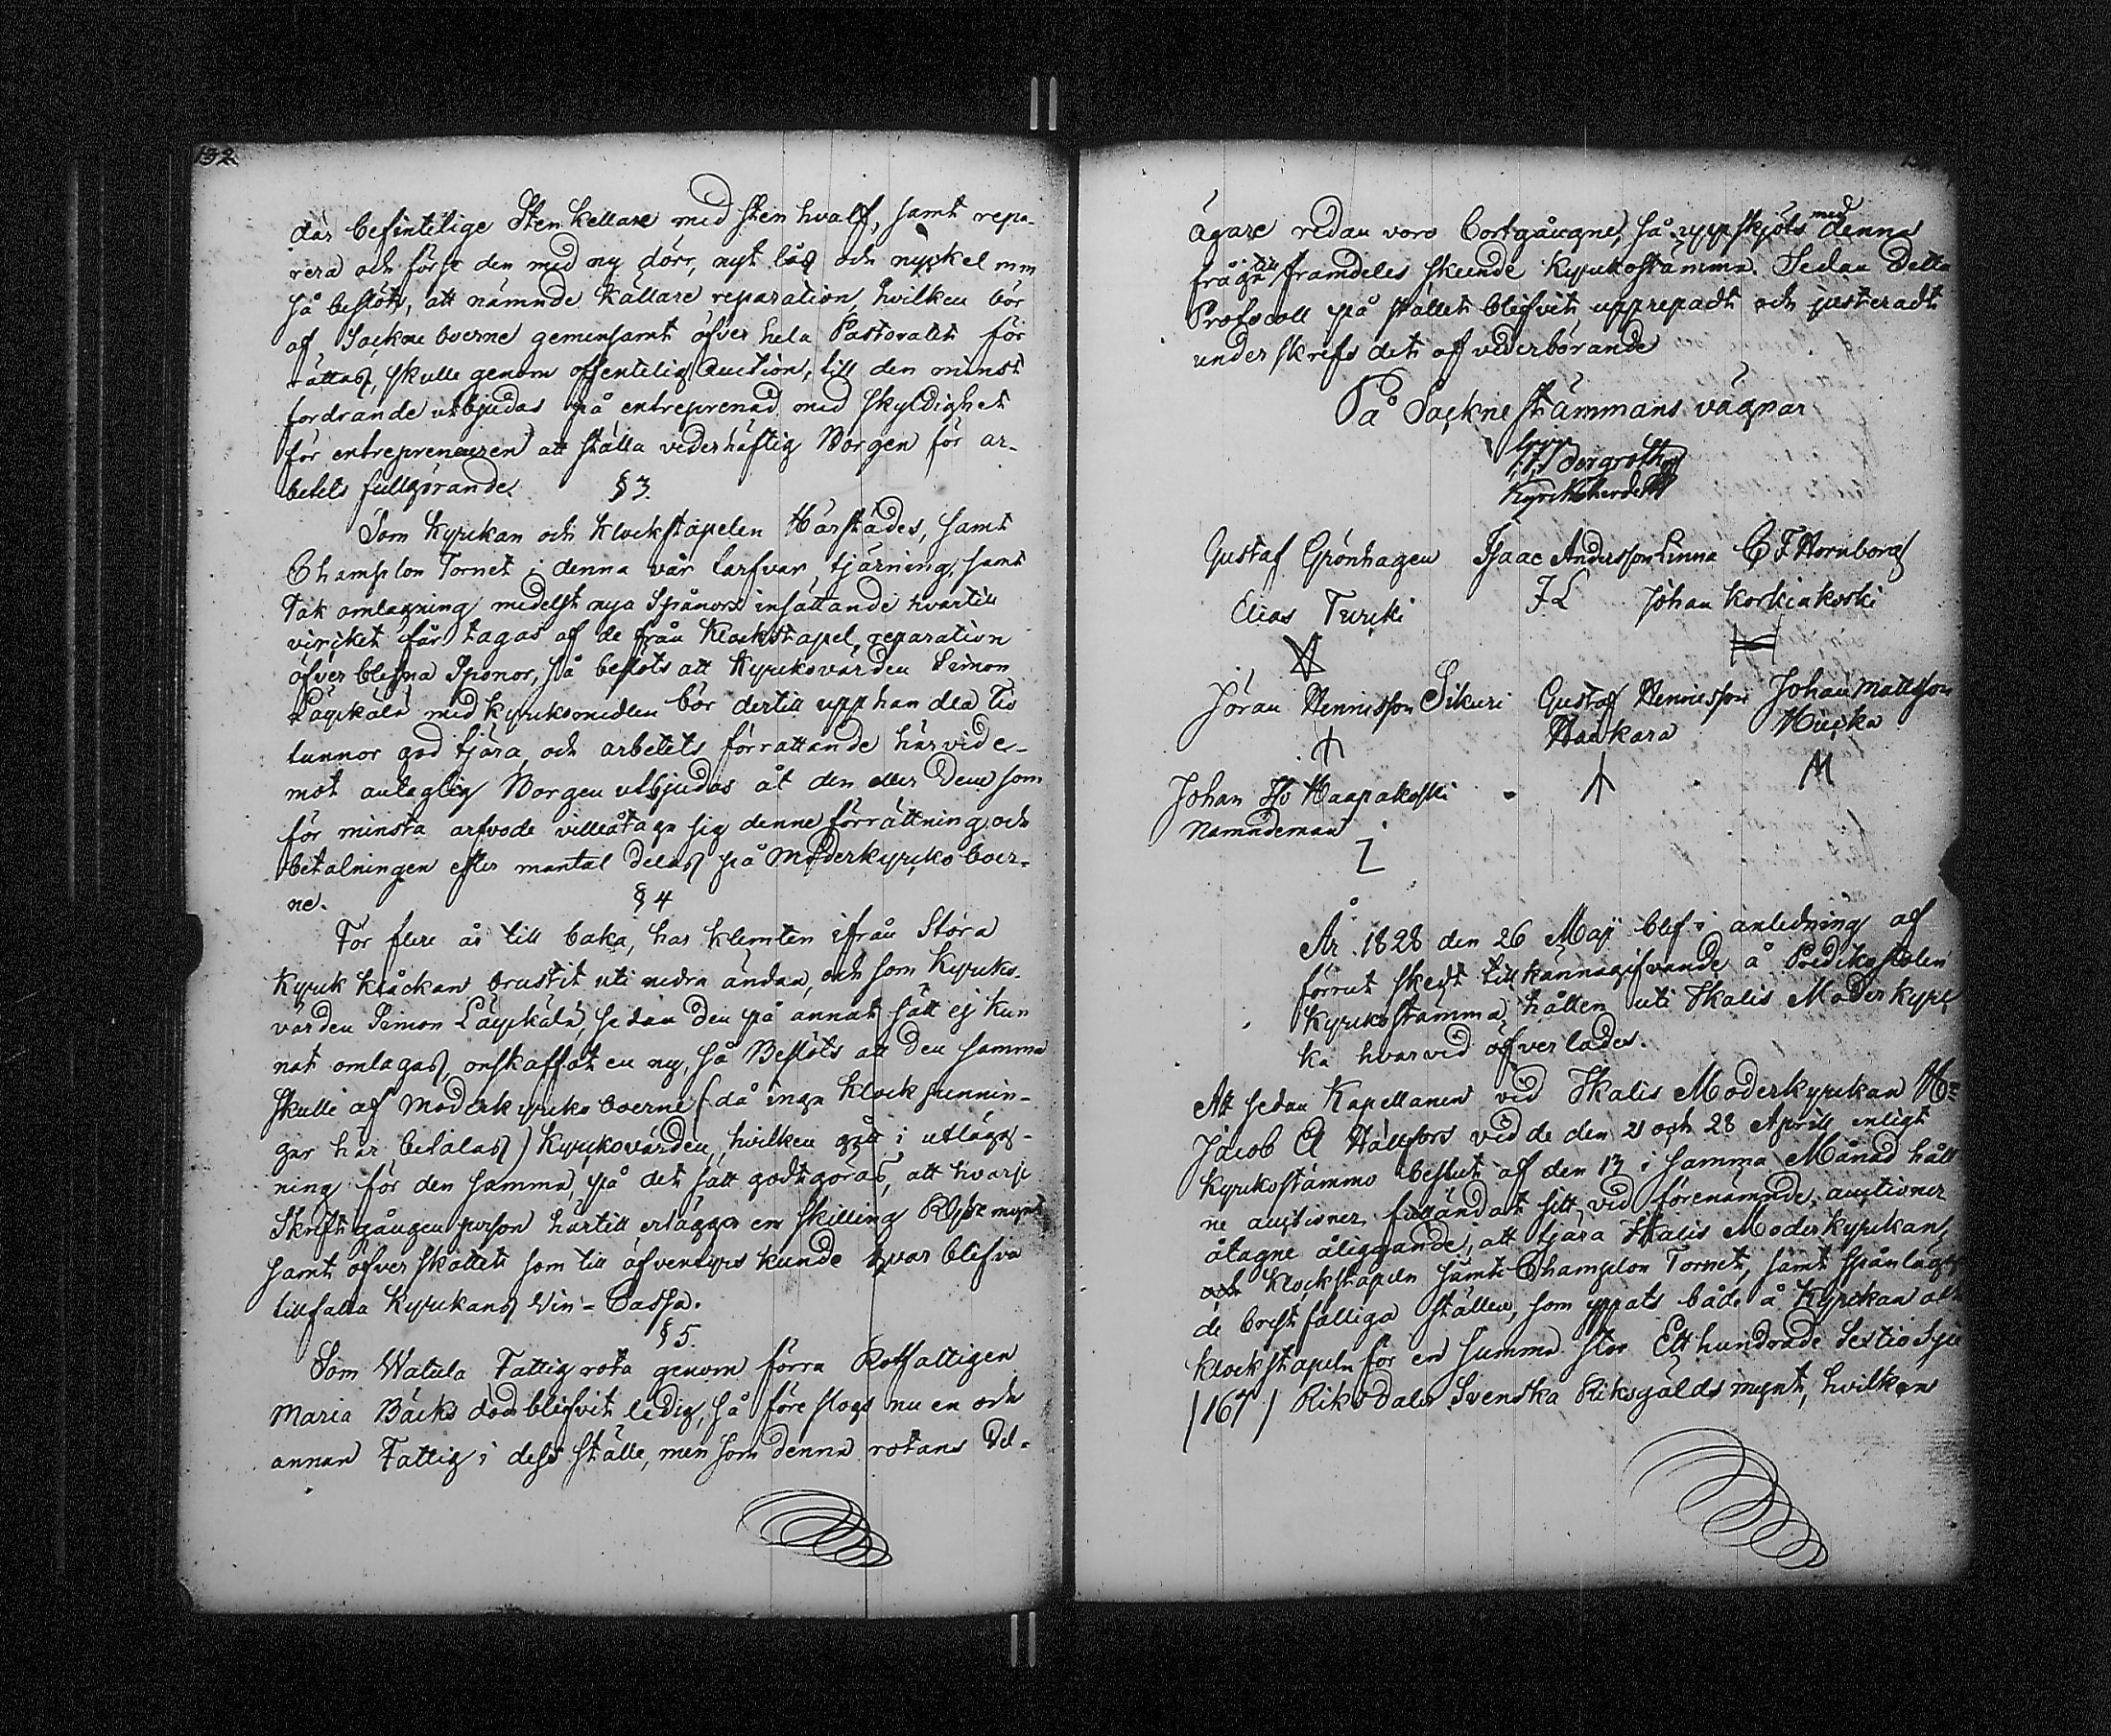 132
där befintelige Sten kellare med sten hvalf, samt repa-
rera och förse den med ny dörr, nytt lås och nyckel mm
så beslöts, att nämnde källare reparation, hvilken bör
af Sockne boerne gemensamt öfver hela Pastoratet för
rättas, skulle genom offentelig Auction, till den minst
fordrande utbjudas på entreprenad med skyldighet
för entrepreneuren att ställa vederhäftig Borgen för ar-
betets fullgörande.
§ 3.
Som Kyrkan och Klockstapelen härstädes, samt
Champlon Tornet i denna vår tarfvar tjärning, samt
Tak omlagning medelst nya Spånors insättande hvartill
virket får tagas af de från Klockstapel, reparation
öfver blefna Sponor, så beslöts att Kyrkovärden Simon
Läykälä med kyrkomedlen bör dertill upphandla tio
tunnor god tjära, och arbetets förrättande härvid e-
mot antaglig Borgen utbjudas åt den eller Dem som
för minsta arfvode ville åtaga sig denne förrättning och
betalningen efter mantal delas på Moderkyrko boer-
ne.
§ 4
För flere år till baka, har klemten ifrån Stora
Kyrk klåckan brustit uti nedra ändan, och som Kyrko-
värden Simon Läykälä, sedan den på annat sätt ej kun
nat omlagas, anskaffat en ny, så Beslöts att den samma
skulle af Moderkyrko boerne (då inga Klockpennin-
gar här betalas) Kyrkovärden, hvilken gått i utlägg-
ning för den samma, på det sätt godtgöras, att hvarje
Skriftgången person härtill erlägger en skilling Rgs mynt
samt öfverskottet som till äfventyrs kunde qvar blifva
tillfalla Kyrkans Vin-Cassa.
§ 5.
Som Watula Fattig rota genom förra Rothaltigen
Maria Bäcks död blifvit ledig, så föreslogs nu en och
annan Fattig i dess ställe, men som denna rotans Del-
ägare redan voro bortgångne, så uppskjöts med denna
fråga till framdeles skeende Kyrkostämma. Sedan Detta
Protocoll på stället blifvit upprepadt och justeradt
underskrefs det af vederbörande
På Socknestämmans vägnar
Bergroth
Kyrkoherde
Gustaf Grönhagen Isaac Andersson Linna C F Hornborg
Elias Turcki I L Johan Korkiakoski
Jöran Hennisson Sikuri Gustaf Hennisson Johan Mattsson
Hankara Hucka
Johan Haapakoski
Nämndeman
År 1828 den 26 Maji blef i anledning af
förrut skedt tillkännagifvande å Predikostolen
Kyrkostämma hållen uti Ikalis Moder kyrc
ka hvarvid öfverlades.
Att sedan Kapellanen vid Ikalis Moderkyrkan H=
Jacob A Hällfors vid de den 21 och 28 Aprill enligt
Kyrkostämmo beslut af den 13 i samma Månad håll
ne auctioner fulländat sitt vid förenämnde auctioner
åtagne åliggande, att tjära Ikalis Moderkyrkan,
och Klockstapeln samt Champlon Tornet, samt Spånlägg
de brist fälliga ställen, som yppats både å Kyrkan och
Klockstapeln för en summa stor Ett hundrade Sextio Sju
/167/ Riksdaler Svenska Riksgälds mynt, hvilken